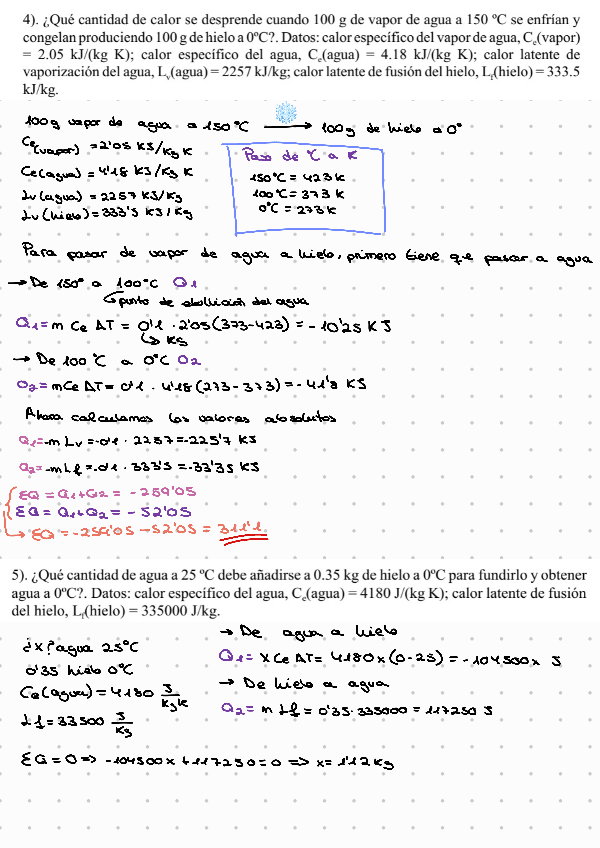 4). ¿Qué cantidad de calor se desprende cuando 100 g de vapor de agua a 150 ºC se enfrían y
congelan produciendo 100 g de hielo a 0ºC?. Datos: calor específico del vapor de agua, Ce(vapor)
= 2.05 kJ/(kg K); calor específico del agua, Ce(agua) = 4.18 kJ/(kg K); calor latente de
vaporización del agua, Lv(agua) = 2257 kJ/kg; calor latente de fusión del hielo, Lf(hielo) = 333.5
kJ/kg.
100g vapor de agua a 150°C ⟶ 100g de hielo a 0°
Ce(vapor) = 2'05 KJ/Kg K
Ce(agua) = 4'18 KJ/Kg K
Lv (agua) = 2257 KJ/Kg
Lv (hielo) = 333'5 KJ/Kg
Paso de °C a K
150°C = 423K
100°C = 373 K
0°C = 273K
Para pasar de vapor de agua a hielo, primero tiene que pasar a agua
→ De 150° a 100°C Q1
↳ punto de ebullición del agua
Q1 = m Ce ΔT = 0'1 · 2'05 (373-423) = -10'25 KJ
↳ KG
→ De 100°C a 0°C Q2
Q2 = mCe ΔT = 0'1 · 4'18 (273-373) = -41'8 KJ
Ahora calculamos los valores absolutos
Q1 = -m Lv = -0'1 · 2257 = -225'7 KJ
Q2 = -m Lf = -0'1 · 333'5 = -33'35 KJ
ΣQ = Q1 + Q2 = -259'05
ΣQ = Q1 + Q2 = -52'05
↳ ΣQ = -259'05 - 52'05 = 311'1
5). ¿Qué cantidad de agua a 25 ºC debe añadirse a 0.35 kg de hielo a 0ºC para fundirlo y obtener
agua a 0ºC?. Datos: calor específico del agua, Ce(agua) = 4180 J/(kg K); calor latente de fusión
del hielo, Lf(hielo) = 335000 J/kg.
¿x? agua 25°C
0'35 hielo 0°C
Ce(agua) = 4180 J/KgK
Lf = 33500 J/Kg
→ De agua a hielo
Q1 = X Ce ΔT = 4180x(0-25) = -104500x J
→ De hielo a agua
Q2 = m Lf = 0'35 · 335000 = 117250 J
ΣQ = 0 => -104500x + 117250 = 0 => x = 1'12 Kg